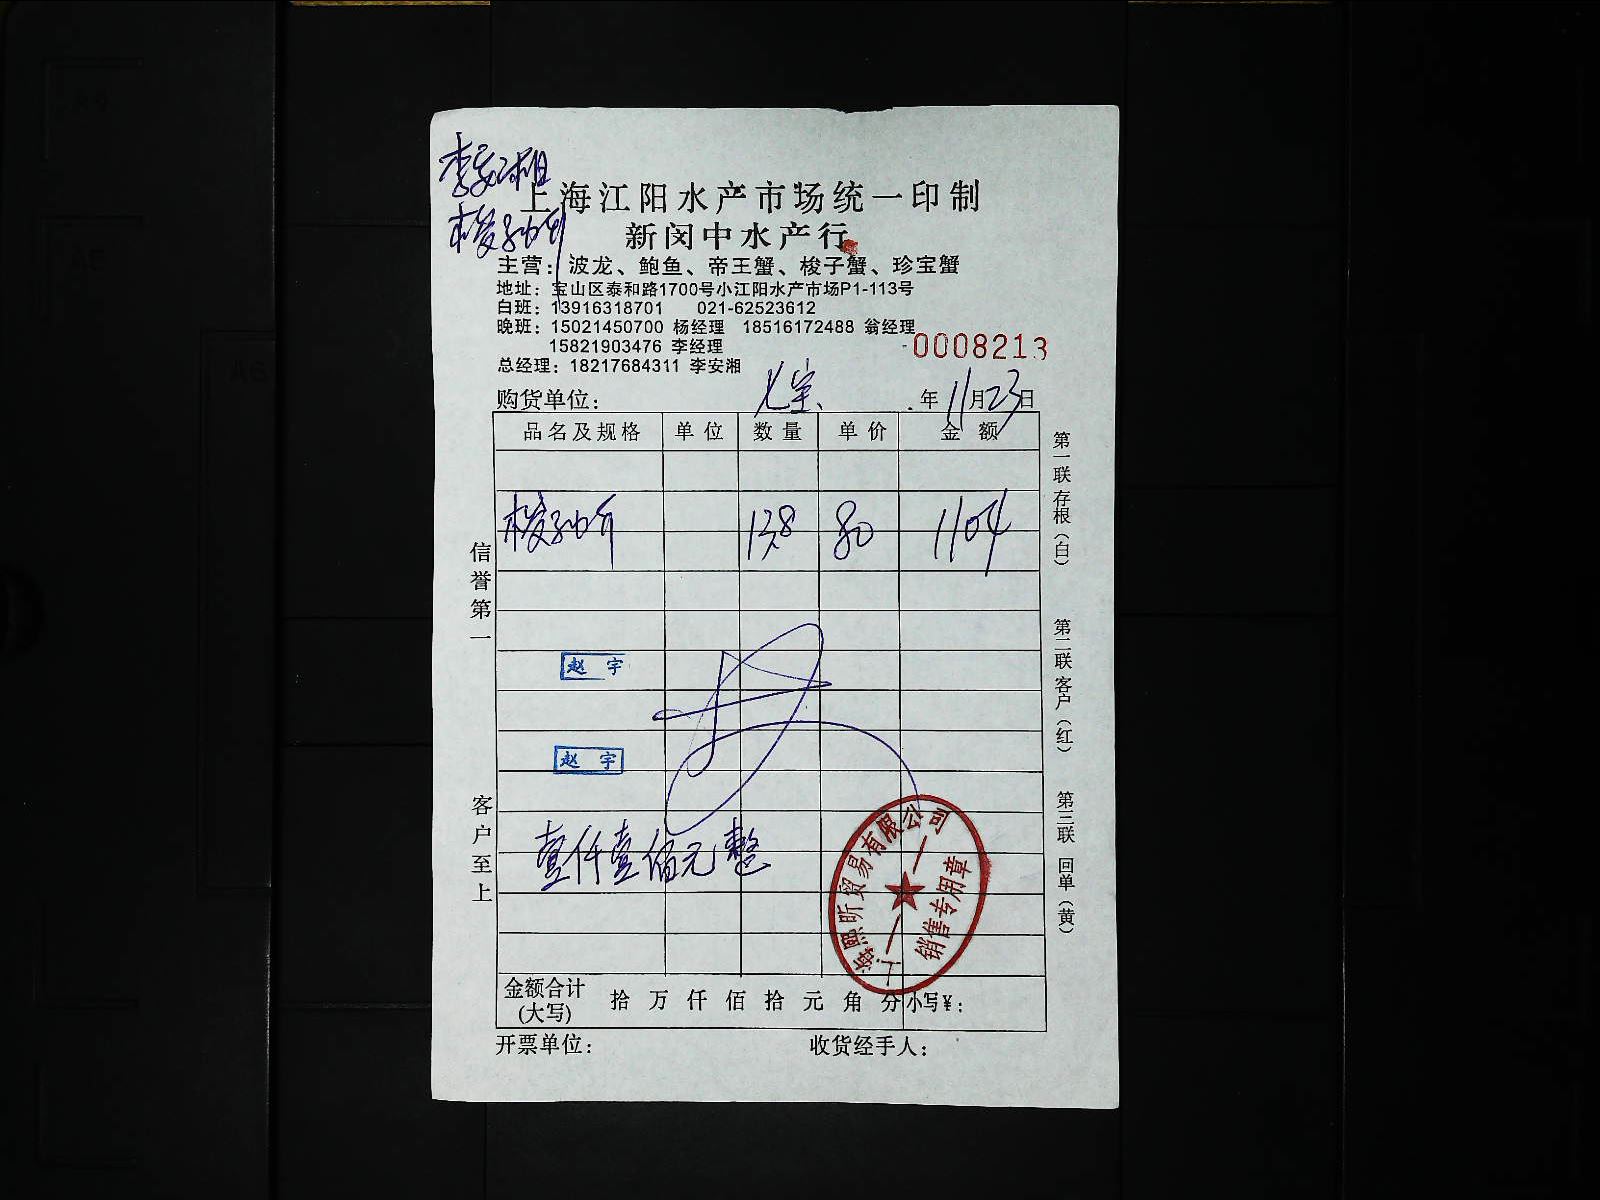 李安湘
梭子蟹
上海江阳水产市场统一印制
新闵中水产行
主营：波龙、鲍鱼、帝王蟹、梭子蟹、珍宝蟹
地址：宝山区泰和路1700号小江阳水产市场P1-113号
白班：13916318701 021-62523612
晚班：15021450700 杨经理 18516172488 翁经理
15821903476 李经理
0008213
总经理：18217684311 李安湘
购货单位： 七宝 年 11月23日
品名及规格 单位 数量 单价 金额
梭子蟹 13.8 80 1104
赵宇
赵宇
壹仟壹佰元整
上海熙昕贸易有限公司
销售专用章
金额合计(大写) 拾 万 仟 佰 拾 元 角 分 小写¥：
开票单位： 收货经手人：
信誉第一
客户至上
第一联 存根（白）
第二联 客户（红）
第三联 回单（黄）